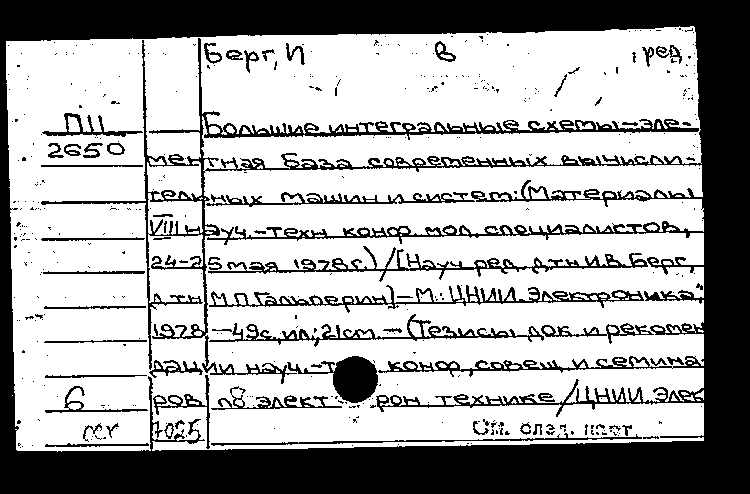 Берг, И В , ред.
П11
2650
Большие интегральные схемы — эле-
ментная база современных вычисли-
тельных машин и систем: (Материалы
VIII науч.-техн конф мол. специалистов,
24-25 мая 1978 г.) / [Науч ред д.тн И.В. Берг,
д.тн М.П. Гальперин] — М.: ЦНИИ „Электроника",
1978 — 49с, ил; 21cm — (Тезисы док. и рекомен
дации науч.-т конф, совещ и семина
ров по элект рон технике / ЦНИИ Элек
6
7025 См. след. карт.